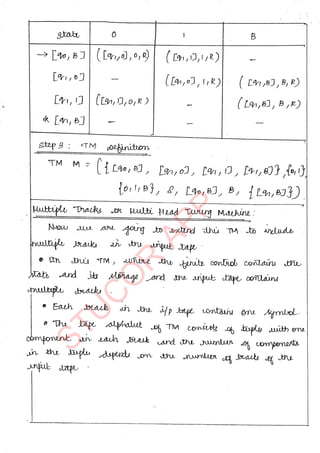 state 0 1 B
→ [q0, B] ([q1,0], 0, R) ([q1,1], 1, R) –
[q1, 0] – ([q1,0], 1, R) ([q1,B], B, R)
[q1, 1] ([q1,1], 0, R) – ([q1,B], B, R)
* [q1, B] – – –
Step 3: TM Definition
TM M = ({[q0,B], [q1,0], [q1,1], [q1,B]}, {0,1},
{0,1,B}, δ, [q0,B], B, {[q1,B]})
Multiple Tracks or Multi Head Turing Machine:
Now we are going to extend this TM to include
multiple tracks in the input tape.
• In this TM, where the finite control contains the
state and its storage and the input tape contains
multiple tracks.
• Each track in the i/p tape contains one symbol.
• The tape alphabet of TM consists of tuples with one
component in each track and the number of components
in the tuples depends on the number of tracks of the
input tape.
STUCOR APP